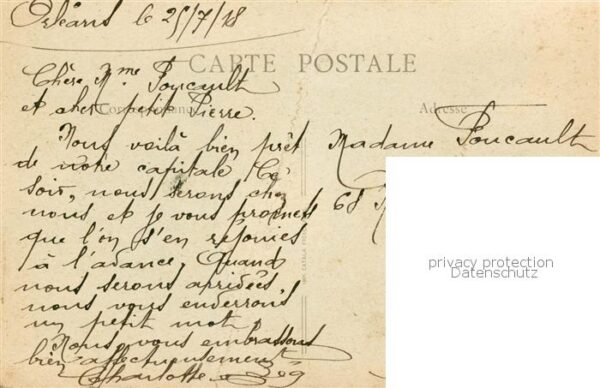 Orléans le 25/7/18
CARTE POSTALE
Correspondance
Adresse
Chère Mme Foucault
et cher petit Pierre.
Nous voilà bien prêt
de notre capitale Ce
soir, nous serons chez
nous et je vous promess
que l'on s'en rejouies
à l'avance, Quand
nous serons arridées,
nous vous enderrons
un petit mot.
Nous vous embrassons
bien affectueusement
Charlotte
Madame Foucault
68
privacy protection
Datenschutz